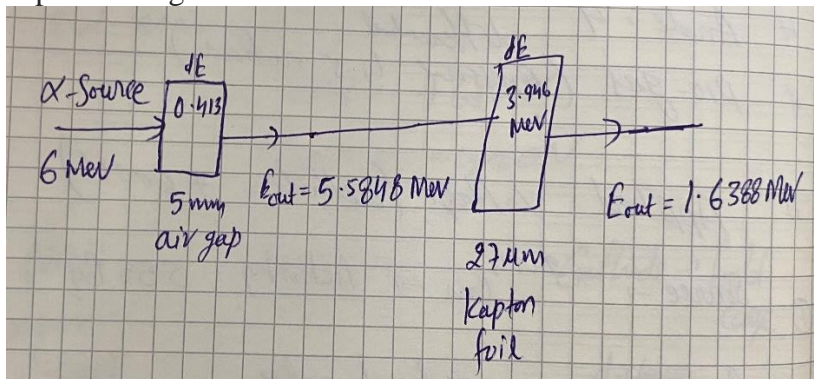 α-Source
6 MeV
dE
0.413
5mm
air gap
Eout = 5.5848 MeV
dE
3.946
MeV
27 μm
Kapton
foil
Eout = 1.6388 MeV